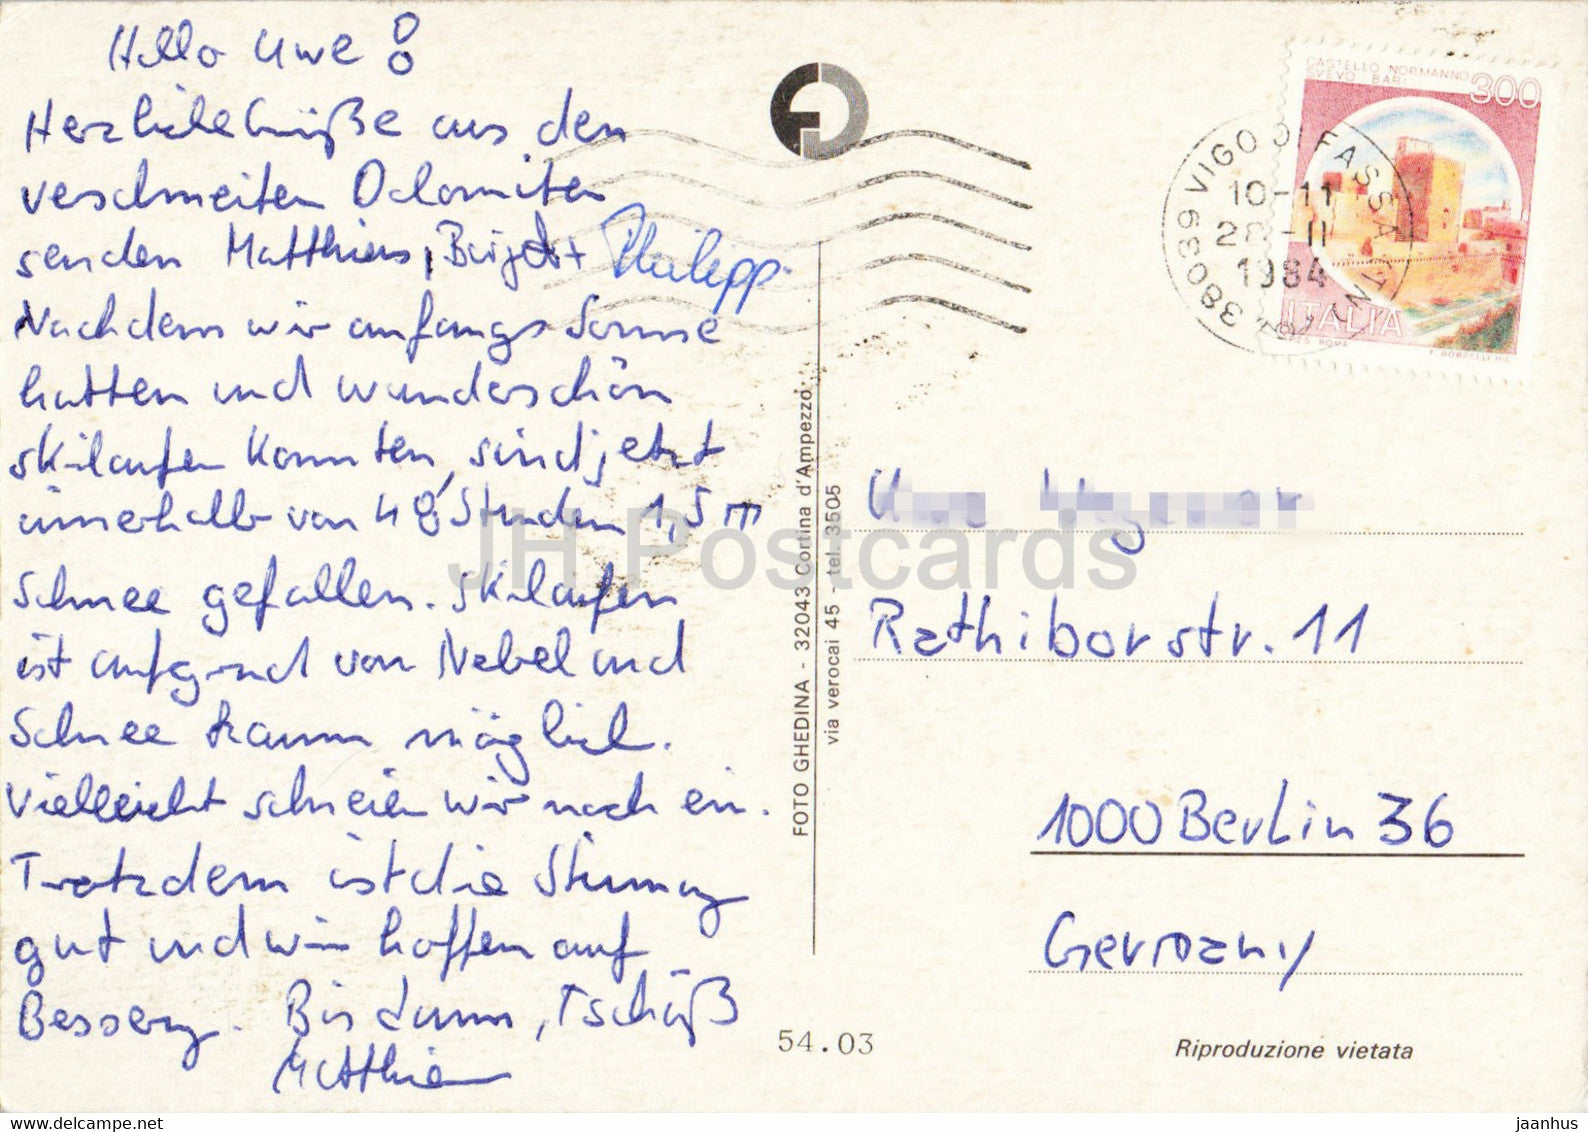 Hallo Uwe!
Herzliche Grüße aus den
verschneiten Dolomiten
senden Matthias, Birgit + Philipp.
Nachdem wir anfangs Sonne
hatten und wunderschön
skilaufen konnten, sind jetzt
innerhalb von 48 Stunden 1,5 m
Schnee gefallen. Skilaufen
ist aufgrund von Nebel und
Schnee kaum möglich.
Vielleicht schneien wir noch ein.
Trotzdem ist die Stimmung
gut und wir hoffen auf
Besserung. Bis dann, Tschüß
Matthias
FOTO GHEDINA - 32043 Cortina d'Ampezzo
via verocai 45 - tel. 3505
54.03
CASTELLO NORMANNO
SVEVO BARI
300
ITALIA
38039 VIGO DI FASSA (TN)
10-11
28-II
1984
Uwe
Rathiborstr. 11
1000 Berlin 36
Germany
Riproduzione vietata
JH Postcards
www.delcampe.net
jaanhus